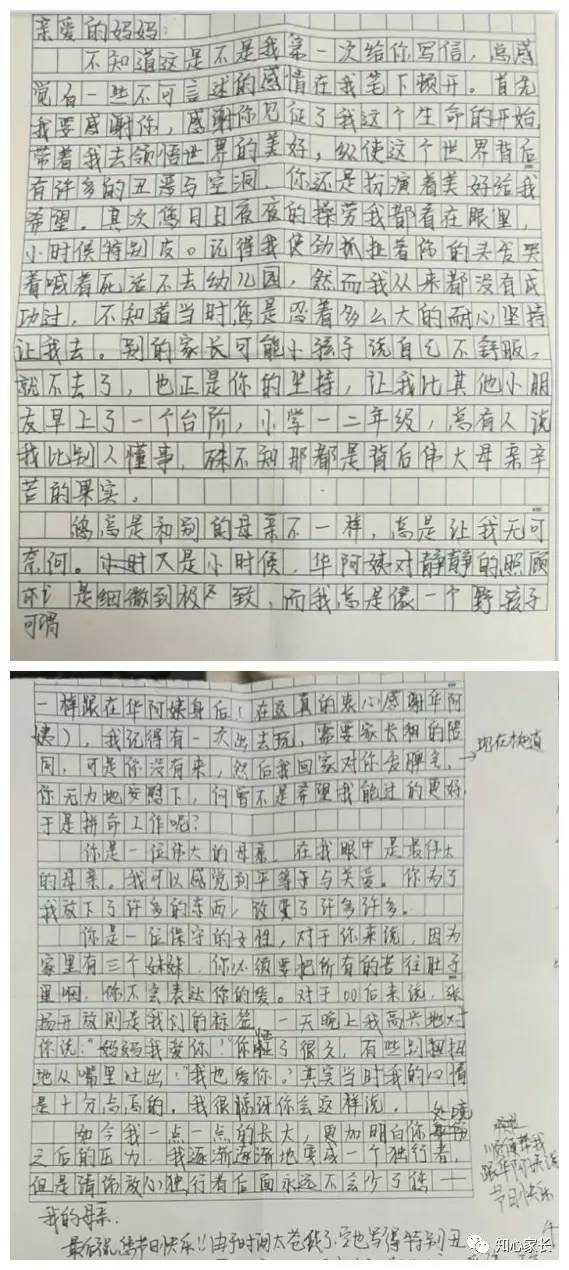 亲爱的妈妈:
不知道这是不是我第一次给你写信,总感
觉有一些不可言述的感情在我笔下顿开。首先
我要感谢你,感谢你见证了我这个生命的开始,
带着我去领悟世界的美好,纵使这个世界背后
有许多的丑恶与空洞,你还是扮演着美好给我
希望。其次您日日夜夜的操劳我都看在眼里,
小时候特别皮。记得我使劲抓扯着你的头发哭
着喊着死活不去幼儿园,然而我从来都没有成
功过,不知道当时您是忍着多么大的耐心坚持
让我去。别的家长可能小孩子说自己不舒服,
就不去了,也正是你的坚持,让我比其他小朋
友早上了一个台阶,小学一二年级,总有人说
我比别人懂事,殊不知那都是背后伟大母亲辛
苦的果实。
您总是和别的母亲不一样,总是让我无可
奈何。小时又是小时候,华阿姨对静静的照顾
是细微到极致,而我总是像一个野孩子
可谓
一样跟在华阿姨身后(在这真的衷心感谢华阿
姨),我记得有一次出去玩,需要家长相的陪
同,可是你没有来,然后我回家对你发脾气,
现在才知道
你无力地安慰下,何曾不是希望我能过的更好,
于是拼命工作呢?
你是一位伟大的母亲,在我眼中是最伟大
的母亲。我可以感觉到平等于与关爱。你为了
我放下了许多的东西,改变了许多许多。
你是一位保守的女性,对于你来说,因为
家里有三个妹妹,你必须要把所有的苦往肚子
里咽,你不会表达你的爱。对于00后来说,张
扬开放则是我们的标签,一天晚上我高兴地对
你说:"妈妈我爱你!"你愣了很久,有些别扭
地从嘴里吐出:"我也爱你。"其实当时我的心情
是十分高的。我很惊讶你会这样说。
如今我一点一点的长大,更加明白你处境
之后的压力,我逐渐逐渐地变成一个独行者,
但是请你放心独行者后面永远不会少了您——
顺便帮我
跟华阿姨说
节日快乐
我的母亲.
最后祝您节日快乐!!由于时间太仓促了,字也写得特别丑
知心家长